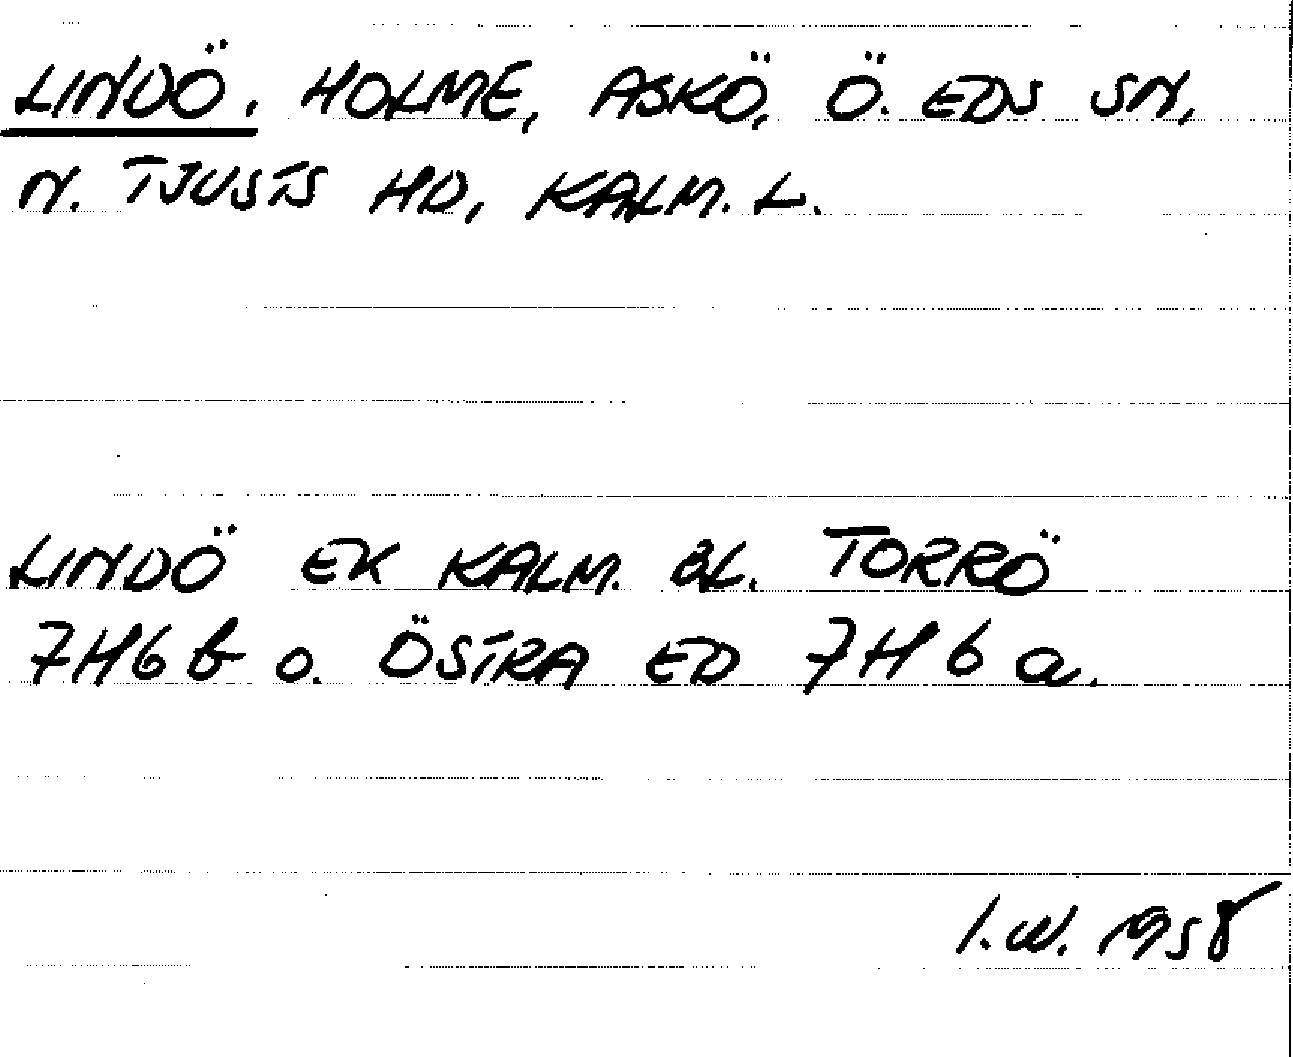 LINDÖ. HOLME, ASKÖ, Ö. EDS SN,
N. TJUSTS HD, KALM. L.
LINDÖ EK KALM. BL. TORRÖ
7H6b o. ÖSTRA ED 7H6a.
I.W. 1958